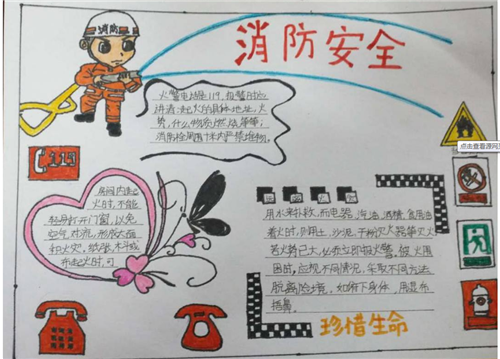 消防安全
消防
火警电话是119,报警时应
讲清:起火的具体地址,火
势,什么物质燃烧等等;
消防栓周围十米内严禁堆物。
点击查看源网页
119
房间内起
火时,不能
轻易打开门窗,以免
空气对流,形成大面
积火灾。纸张、木头或
布起火时,可
用水来扑救,而电器、汽油、酒精、食用油
着火时,则用土、沙泥、干粉灭火器等灭火
若火势已大,必须立即报火警。被火围
困时,应视不同情况,采取不同方法
脱离险境,如俯下身体,用湿布
捂鼻
珍惜生命